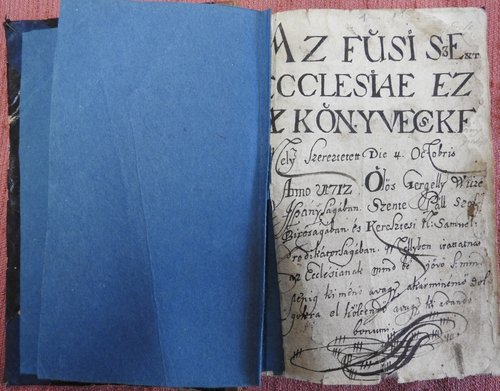 AZ FÜSI SZEnt
ECCLESIAE EZ
AZ KÖNYVECSKE
Mely Szereztetett Die 4. Octobris
Anno 1712 Ölös Gergelly Wize
Ispanyságában. Szente Pall
Biróságában és Keresztesi P. Samuel
Prédikátorságában. Mellyben irattatnak
az Ecclesianak mind be jövö s mind
penig ki menö avagy akarminémö dol
gokra el költendö avagy ki adandó
bonumi